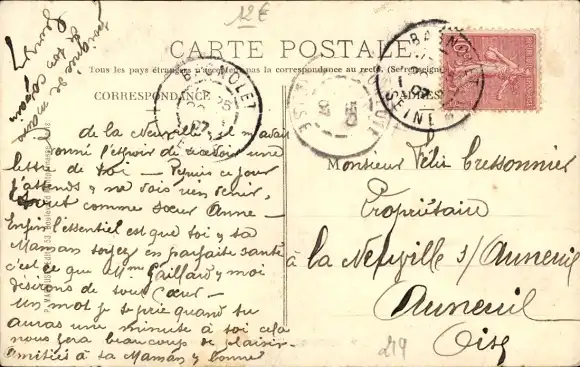 12 €
CARTE POSTALE
Tous les pays étrangers n'acceptent pas la correspondance au recto.
CORRESPONDANCE
ADRESSE
BAGNOLET
SEINE
07
de la Neuville, il m'avait
donné l'espoir de recevoir une
lettre de toi — Depuis ce jour
j'attends & ne vois rien venir,
tout comme sœur Anne —
Enfin l'essentiel est que toi & ta
Maman soyez en parfaite santé
c'est ce que Mme Gaillard & moi
désirons de tout cœur —
Un mot je te prie quand tu
auras une minute à toi cela
nous fera beaucoup de plaisir.
Amitiés à ta Maman & bonne
poignée de mains
de ton copain
Monsieur Félix Cressonnier
Propriétaire
à la Neuville s/ Auneuil
Auneuil
Oise
219